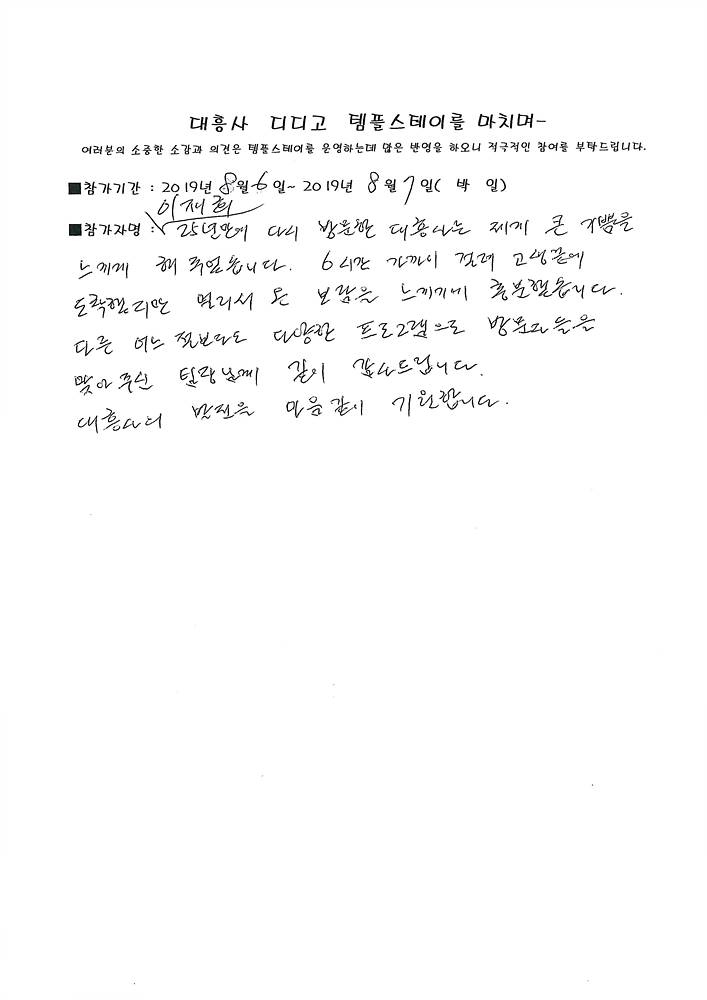 대흥사 디디고 템플스테이를 마치며-
여러분의 소중한 소감과 의견은 템플스테이를 운영하는데 많은 반영을 하오니 적극적인 참여를 부탁드립니다.
■참가기간 : 2019년 8월 6일~2019년 8월 7일( 박 일)
이재희
■참가자명 : 25년만에 다시 방문한 대흥사는 제게 큰 기쁨을
느끼게 해 주었습니다. 6시간 가까이 걸려 고생끝에
도착했지만 멀리서 온 보람을 느끼기에 충분했습니다.
다른 어느 절보다도 다양한 프로그램으로 방문자들을
맞아주신 팀장님께 깊이 감사드립니다.
대흥사의 발전을 마음같이 기원합니다.